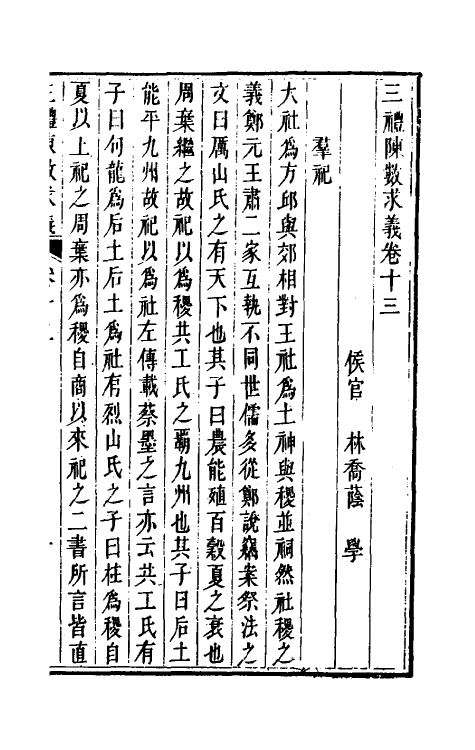 三禮陳數求義卷十三
侯官 林喬蔭 學
羣祀
大社爲方邱與郊相對王社爲土神與稷並祠然社稷之
義鄭元王肅二家互執不同世儒多從鄭說竊案祭法之
文曰厲山氏之有天下也其子曰農能殖百穀夏之衰也
周棄繼之故祀以爲稷共工氏之霸九州也其子曰后土
能平九州故祀以爲社左傳載蔡墨之言亦云共工氏有
子曰句龍爲后土后土爲社有烈山氏之子曰柱爲稷自
夏以上祀之周棄亦爲稷自商以來祀之二書所言皆直
三禮陳數求義